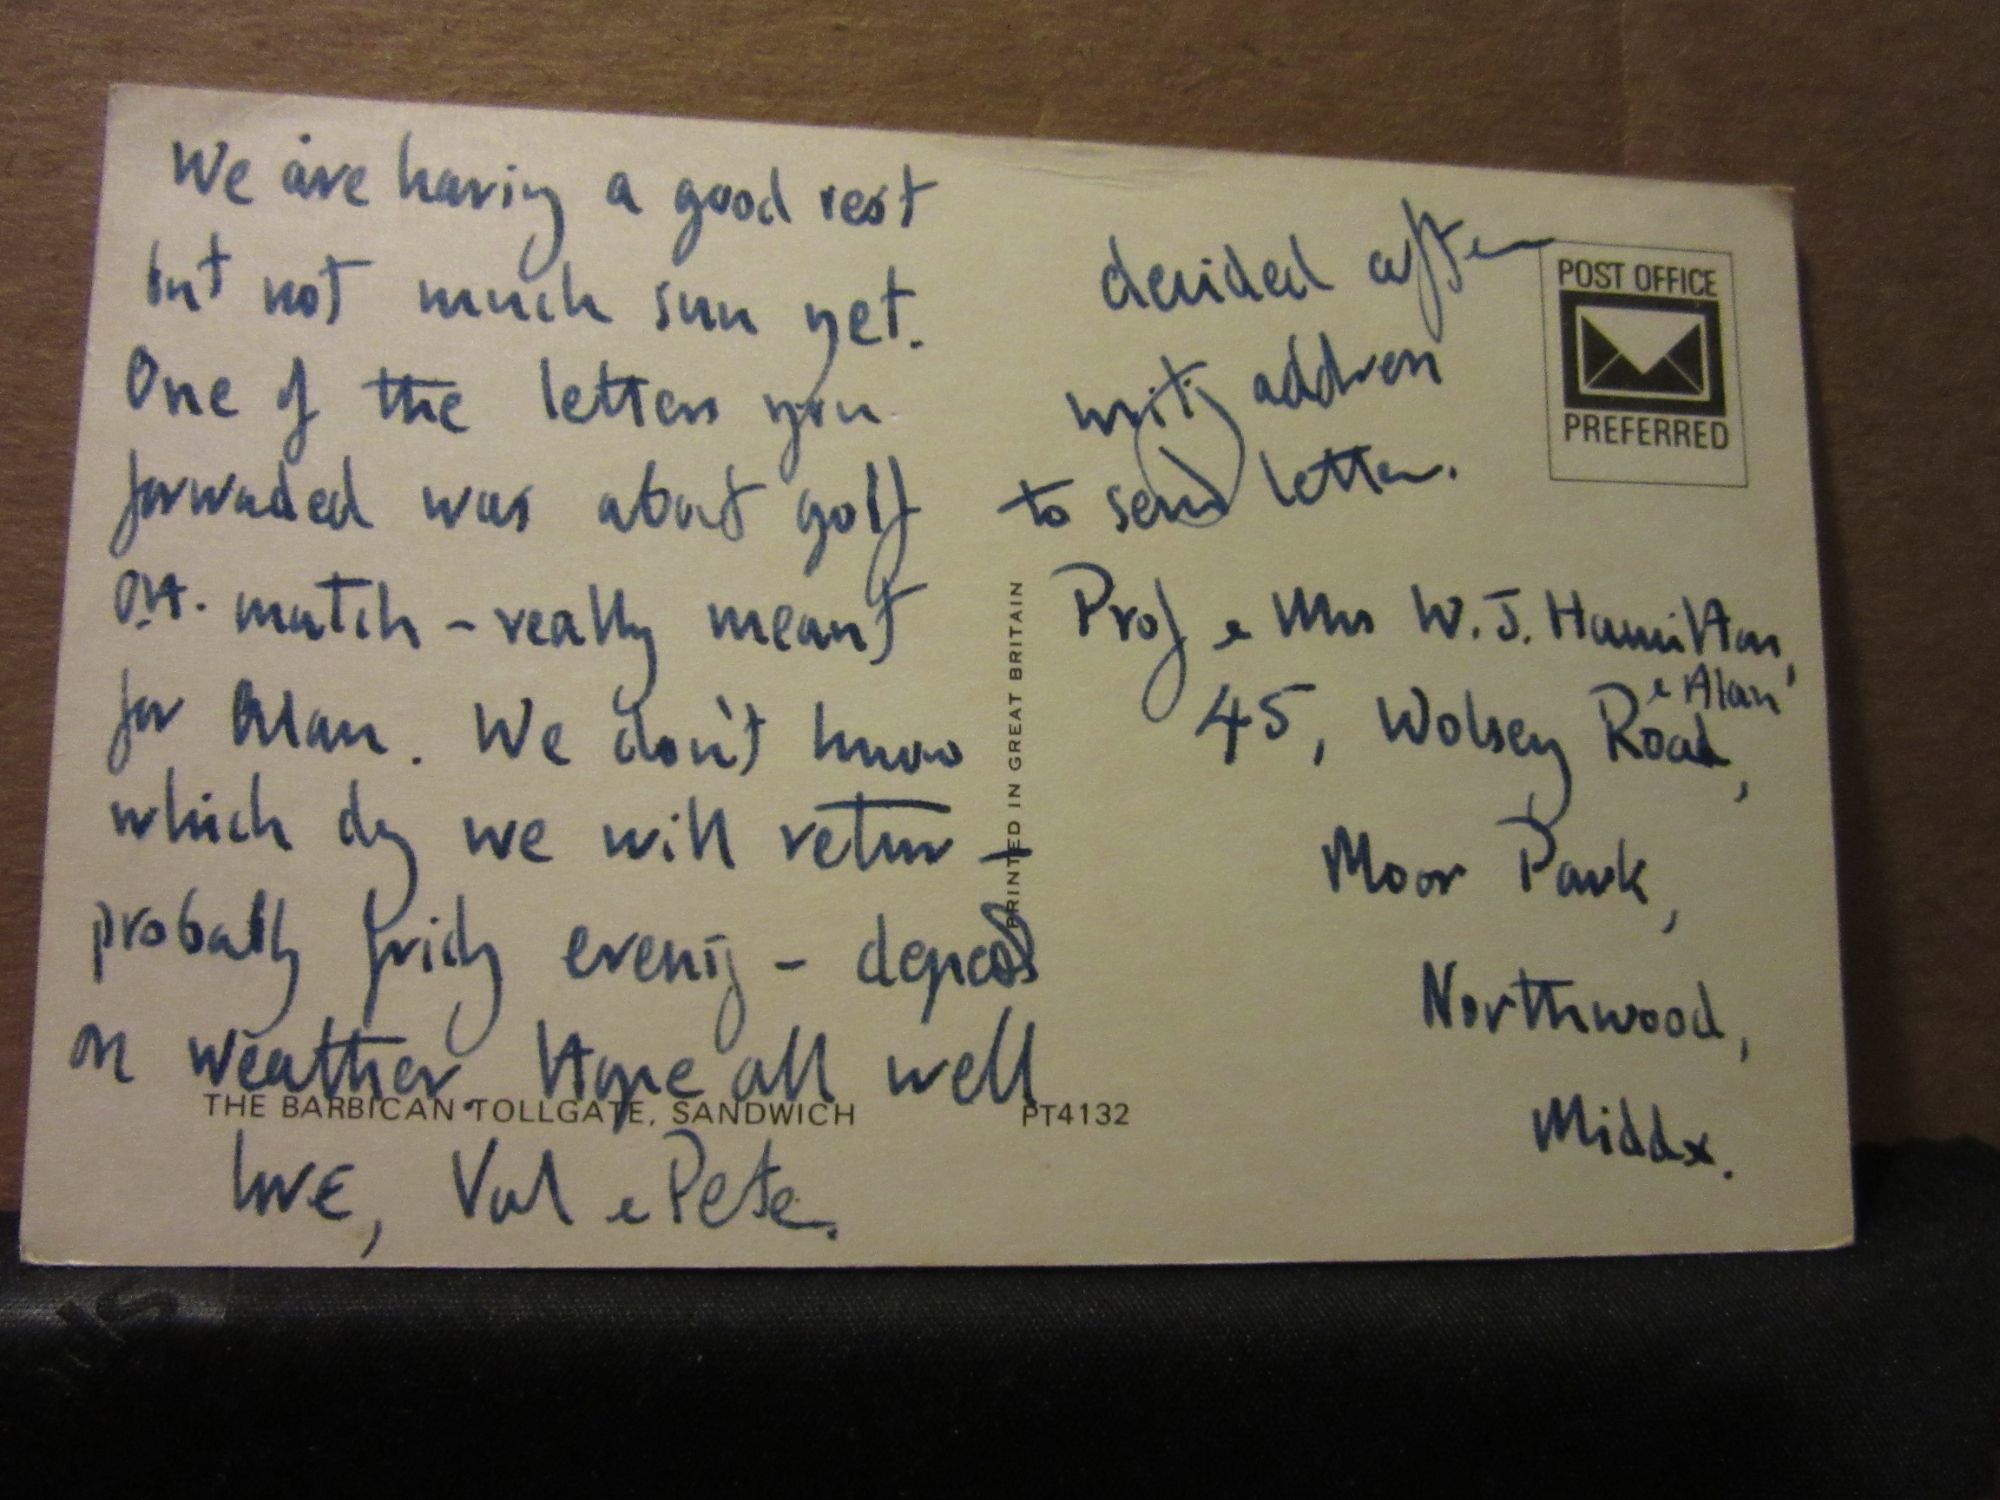 We are having a good rest
but not much sun yet.
One of the letters you
forwaded was about golf
match - really meant
for Alan. We don't know
which day we will return -
probably friday evening - depends
on weather. Hope all well
THE BARBICAN TOLLGATE, SANDWICH PT4132
love, Val & Pete.
PRINTED IN GREAT BRITAIN
decided after
writing address
to send letter.
POST OFFICE
PREFERRED
Prof & Mrs W.J. Hamilton,
& Alan
45, Wolsey Road,
Moor Park,
Northwood,
Middx.